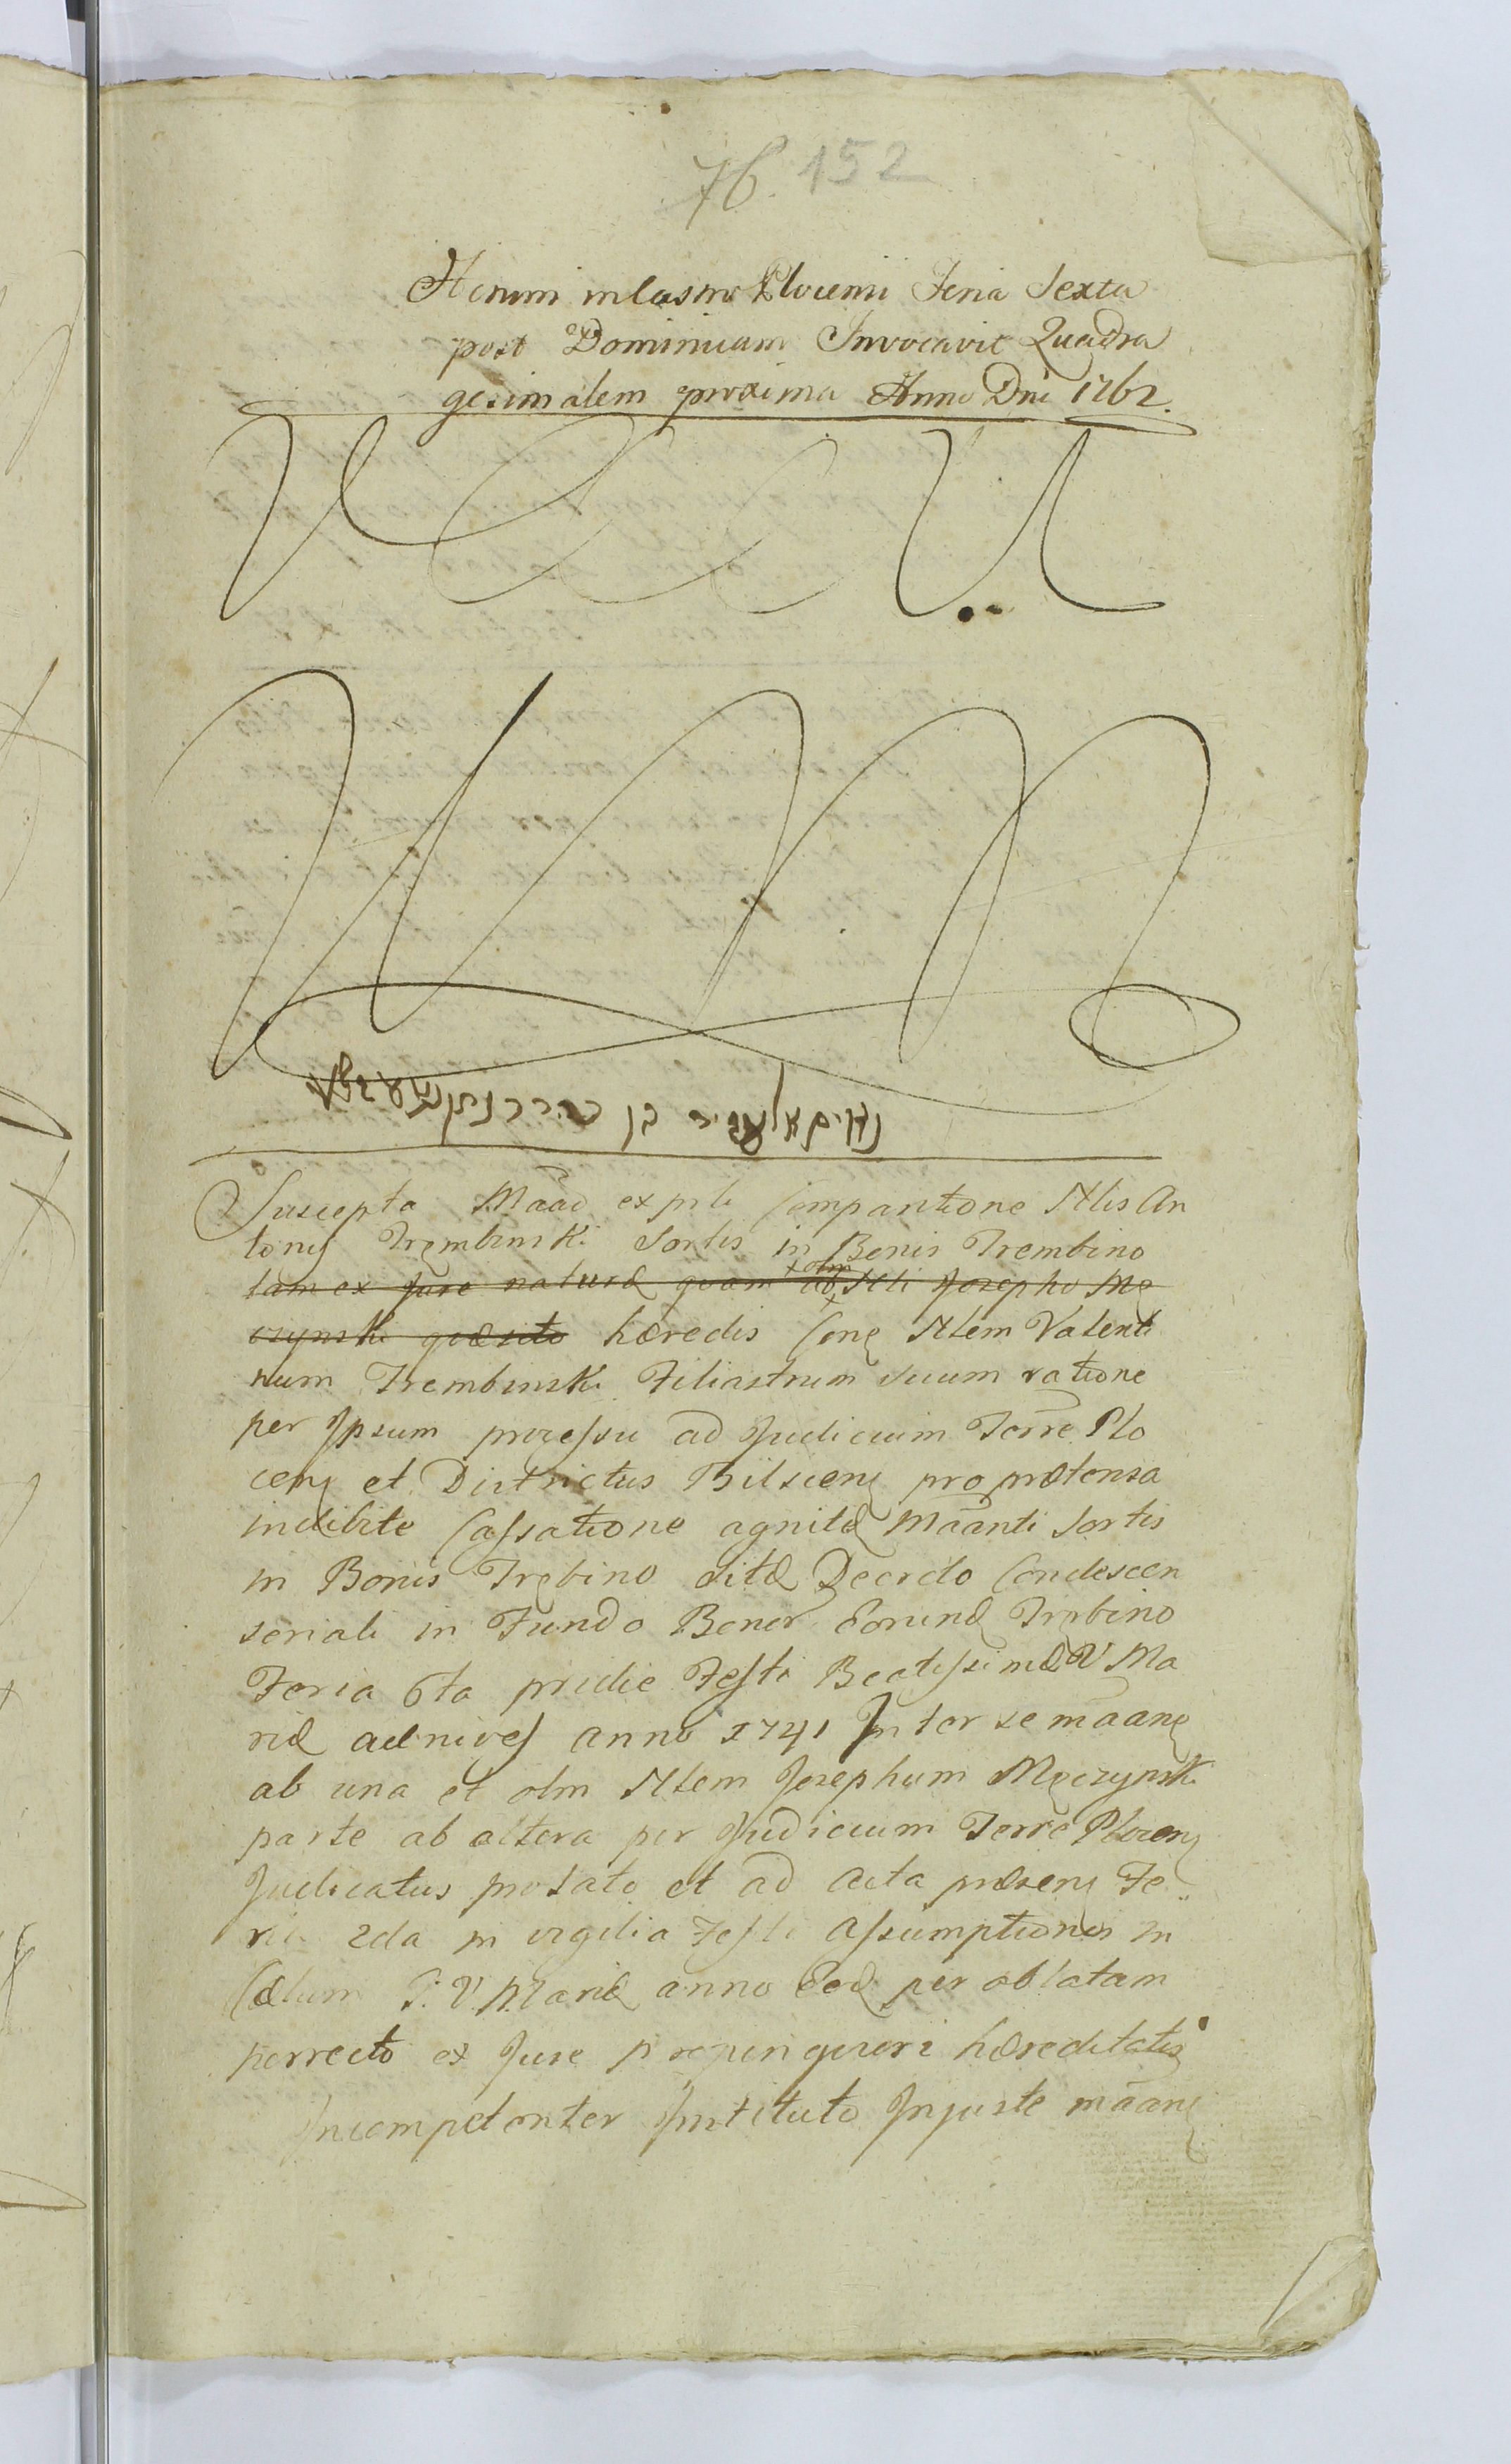 76. 152
Actum in Castro Plocensi Feria Sexta
post Dominicam Invocavit Quadra
gesimalem proxima Anno Dni 1762.
Suscepta Maad ex prli Comparitione Nlis An
tonij Trembinski Sortis in Bonis Trembino
olm
tam ex Jure naturæ quam ab Nli Josepho Mę
czynski quæsito hæredis Cone Nlem Valenti
num Trembinski Filiastrum suum ratione
per Ipsum processu ad Judicium Terre Plo
cen et Districtus Bilscen pro prætensa
indebite Cassatione agnitæ Maanti Sortis
in Bonis Trębino sitæ Decreto Condescen
soriali in Fundo Bonor Eorund Trębino
Feria 6ta pridie Festi Beatissimæ V Ma
riæ ad nives anno 1741 Inter se maane
ab una et olm Nlem Josephum Męczynski
parte ab altera per Judicium Terre Plocen
Judicatus prolato et ad Acta præsen Fe
ria 2da in vigilia Festi Assumptionis in
Cælum B. V. Mariæ anno Eod per oblatam
porrecto ex Jure propinquiori hæreditatis
Incompetenter Instituto Injuste maane